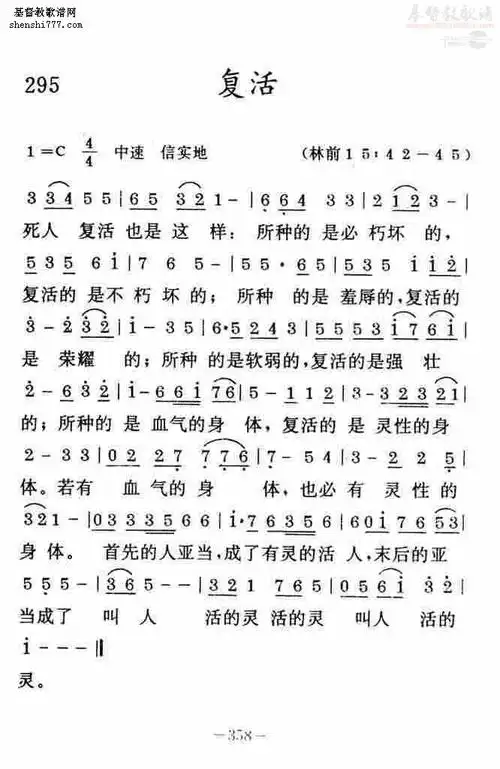 基督教歌谱网
shenshi777.com
基督教歌谱
295
复活
1=C 4/4 中速 信实地 (林前15:42-45)
3 3 4 5 5 | 6 5 3 2 1 - | 6 6 4 3 3 | 2 1 2 3 - |
死人 复活 也是 这 样: 所种的 是必 朽坏 的,
5 3 5 6 i | 7 6 5 - | 5 5 · 6 5 | 5 3 5 i i 2 |
复活的 是不 朽 坏 的; 所种 的是 羞辱的,复活的
3 - 2 3 2 | i - 3 5 | 6 · 5 2 4 3 | 5 5 5 3 i 7 6 i |
是 荣耀 的; 所种 的是软弱的,复活的是强 壮
2 - 6 3 2 | i - 6 6 i 7 6 | 5 - 1 1 2 | 3 - 3 2 3 2 1 |
的; 所种的 是 血气的身 体, 复活的 是 灵性的身
2 - 3 3 | 0 2 2 7 7 7 6 | 7 - 5 4 | 3 - 2 2 5 |
体。若有 血 气的 身 体, 也必 有 灵 性 的
3 2 1 - | 0 3 3 3 3 5 6 6 | i · 7 6 3 5 6 | 6 0 i 7 6 5 3 |
身 体。 首先的人亚当,成了有灵的活 人,末后的亚
5 5 5 - | 3 6 5 - - | 3 2 1 7 6 5 | 0 5 6 i 3 2 |
当成了 叫 人 活的灵 活的灵 叫人 活的
i - - - ‖
灵。
-358-